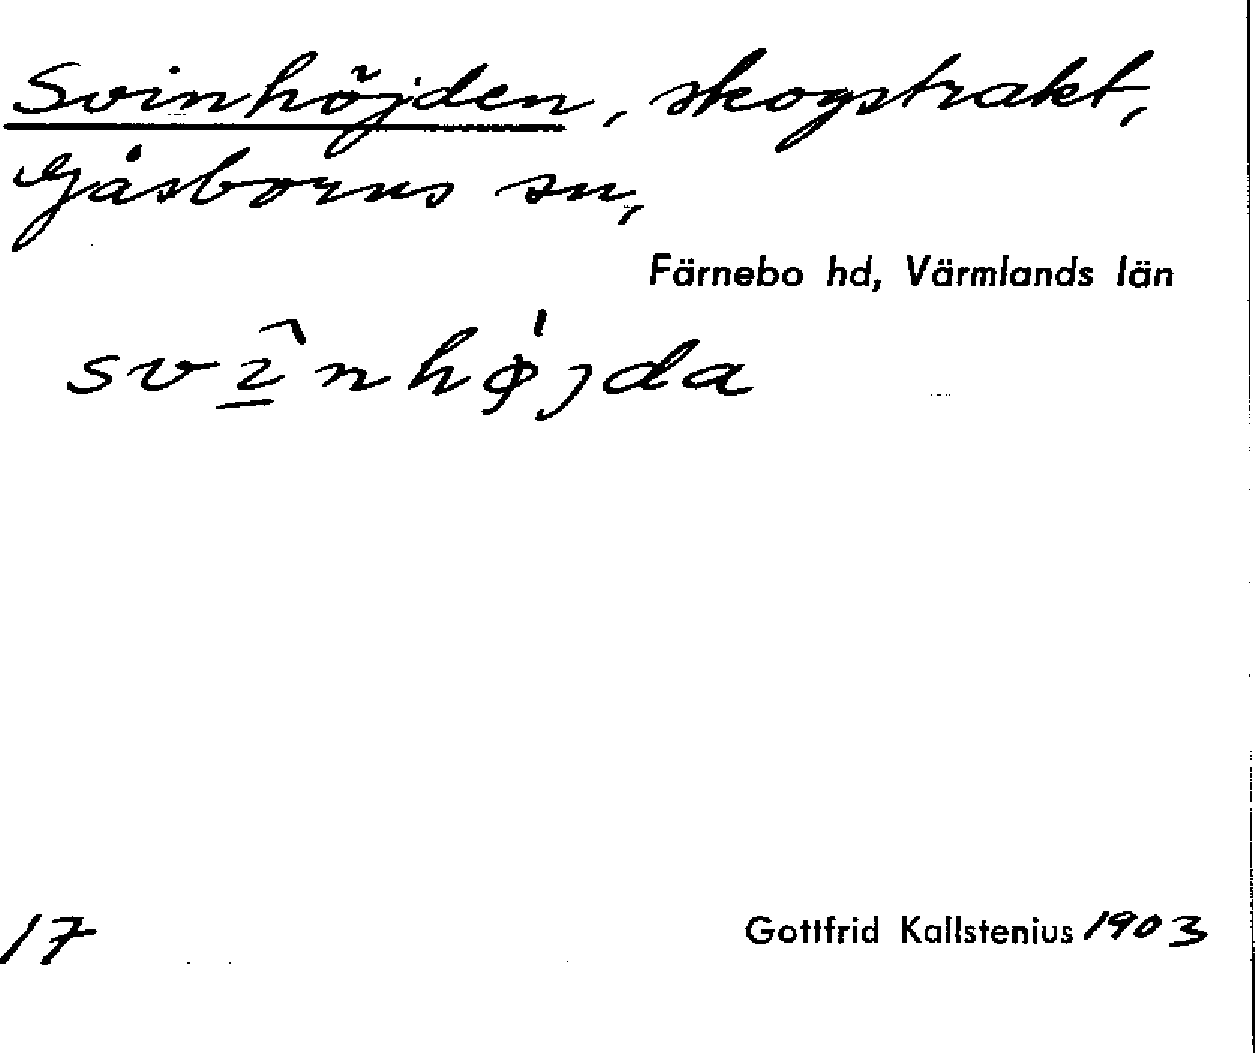 Svinhöjden, skogstrakt,
Gåsborns sn,
Färnebo hd, Värmlands län
svî̲nhø̍jda
17
Gottfrid Kallstenius 1903